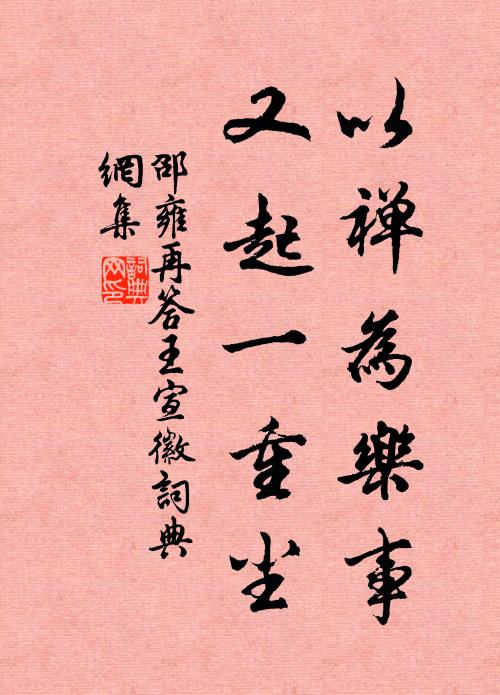 以禪為樂事
又起一重尘
邵雍再答王宣徽詞典
網集
詞典
網印